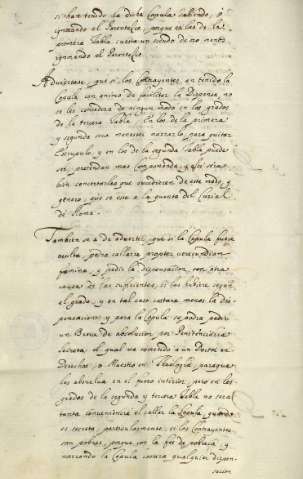 si han tenido la dicha Copula sabiendo, ò
ignorando el Parentesco, porque en los de la
primera tabla, cuesta un tercio de no menos
ignorando el Parentesco.
Adviertese, que si los Contrayentes, an tenido la
Copula con animo de facilitar la Dispensa, no
se les considera de ninguno modo en los grados
de la tercera tabla. En los de la primera
y segunda era necesario narrarlo, para quitar
escrupulo, y en los de la segunda tabla, puede
ser pretendan mas componenda, y assi sera
bien concertarlos que sucedieren de este modo, y
genero, que se este a la quenta del Curial
de Roma.
Tambien se a de advertir, que si la Copula fuere
oculta, podra callarse propter verecundiam
famina, y pedir la dispensacion con otra
causa de las suficientes, si las hubiere segun
el grado, y en tal caso costara menos la dis-
pensacion; y para la Copula se podra pedir
un Breve de absolucion por Penitenciaria
secreta, el qual va cometido a un Doctor en
Derechos, o Maestro en Theologia, paraque
los absuelva en el fuero interior; pero en los
grados de la segunda y tercera tabla no trae
tanta conveniencia el callar la Copula, quando
es secreta, particularmente, si los Contrayentes
son pobres, porque con la fee de pobreza, y
narrando la Copula costara qualquier dispen-
sacion